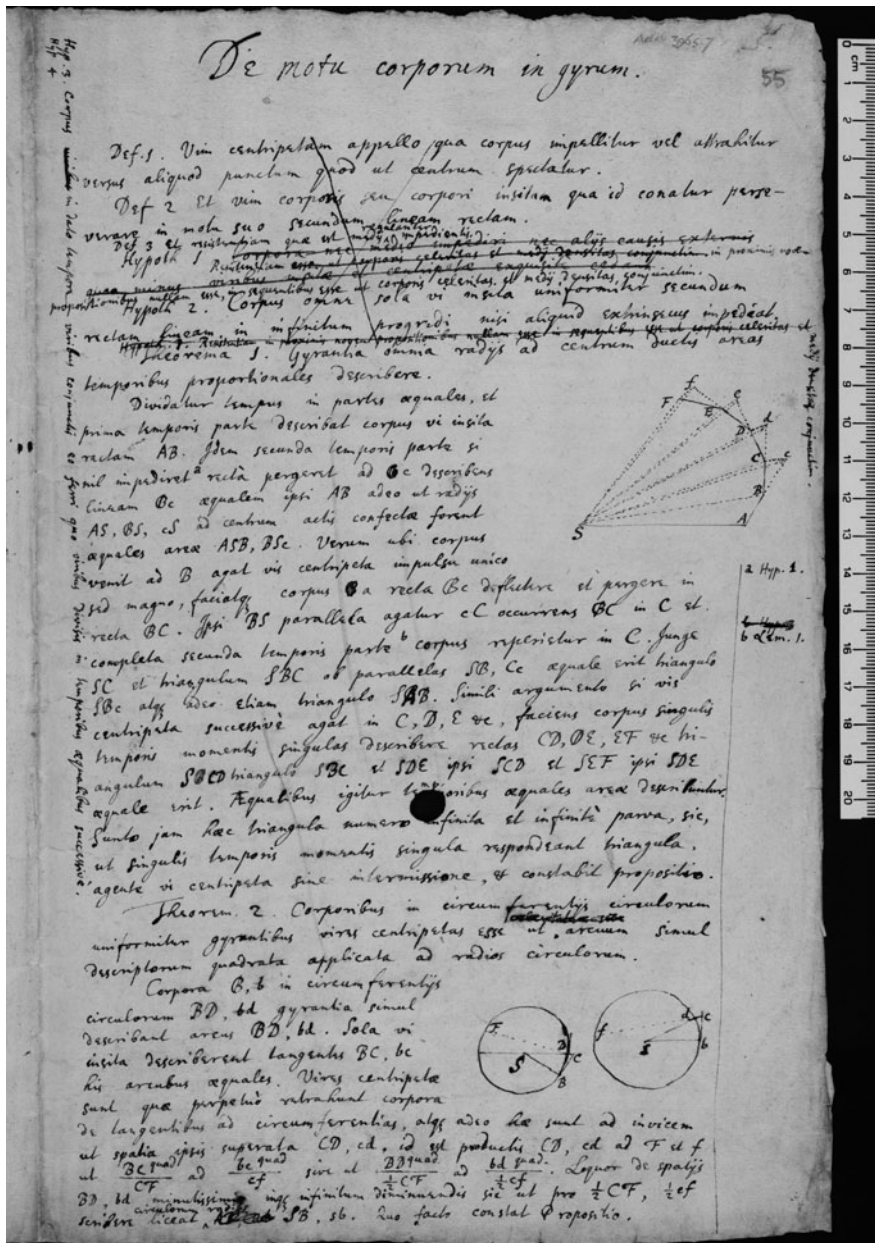 De motu corporum in gyrum.
55
Def. 1. Vim centripetam appello qua corpus impellitur vel attrahitur
versus aliquod punctum quod ut centrum spectatur.
Def 2 Et vim corporis seu corpori insitam qua id conatur perse-
verare in motu suo secundum lineam rectam.
Def 3 et resistentiam quæ est medij regulariter impedientis.
Hypoth 1 corpora nec medio impediri nec alijs causis externis
Resistentiam in proximis novem
quo minus viribus insitæ et centripetæ exquisite cedant.
propositionibus nullam esse, in sequentibus esse ut corporis celeritas et medij densitas conjunctim.
Hypoth 2. Corpus omne sola vi insita uniformiter secundum
rectam lineam in infinitum progredi nisi aliquid extrinsecus impediat.
Theorema 1. Gyrantia omnia radijs ad centrum ductis areas
temporibus proportionales describere.
Dividatur tempus in partes æquales, et
prima temporis parte describat corpus vi insita
rectam AB. Idem secunda temporis parte si
nil impediret a recta pergeret ad c describens
lineam Bc æqualem ipsi AB adeo ut radijs
AS, BS, cS ad centrum actis confectæ forent
æquales areæ ASB, BSc. Verum ubi corpus
venit ad B agat vis centripeta impulsu unico
sed magno, faciatq corpus a recta Bc deflectere et pergere in
recta BC. Ipsi BS parallela agatur cC occurrens BC in C et
completa secunda temporis parte b corpus reperietur in C. Junge
SC et triangulum SBC ob parallelas SB, Cc æquale erit triangulo
SBc atq adeo etiam triangulo SAB. Simili argumento si vis
centripeta successivè agat in C, D, E &c, faciens corpus singulis
temporis momentis singulas describere rectas CD, DE, EF &c tri-
angulum SCD triangulo SBC et SDE ipsi SCD et SEF ipsi SDE
æquale erit. Æqualibus igitur temporibus æquales areæ describuntur.
Sunto jam hæc triangula numero infinita et infinitè parva, sic,
ut singulis temporis momentis singula respondeant triangula,
agente vi centripeta sine intermissione, & constabit propositio.
Theorem. 2. Corporibus in circumferentijs circulorum
uniformiter gyrantibus vires centripetas esse ut arcuum simul
descriptorum quadrata applicata ad radios circulorum.
Corpora B, b in circumferentijs
circulorum BD, bd gyrantia simul
describant arcus BD, bd. Sola vi
insita describerent tangentes BC, bc
his arcubus æquales. Vires centripetæ
sunt quæ perpetuò retrahunt corpora
de tangentibus ad circumferentias, atq adeo hæ sunt ad invicem
ut spatia ipsis superata CD, cd, id est productis CD, cd ad F et f
ut BC quad / CF ad bc quad / cf sive ut BD quad / ½ CF ad bd quad. / ½ cf. Loquor de spatijs
BD, bd minutissimis inq infinitum diminuendis sic ut pro ½ CF, ½ cf
scribere liceat circulorum radios SB, sb. Quo facto constat Propositio.
Hyp. 3. Corpus in dato tempore viribus conjunctis eo ferri quo viribus divisis in temporibus æqualibus successivè.
Hyp 4
medij densitas conjunctim.
a Hyp. 1.
b Lem. 1.
S A B C c D d E e F f
F S D C B
f s d c b
0 cm 1 2 3 4 5 6 7 8 9 10 11 12 13 14 15 16 17 18 19 20